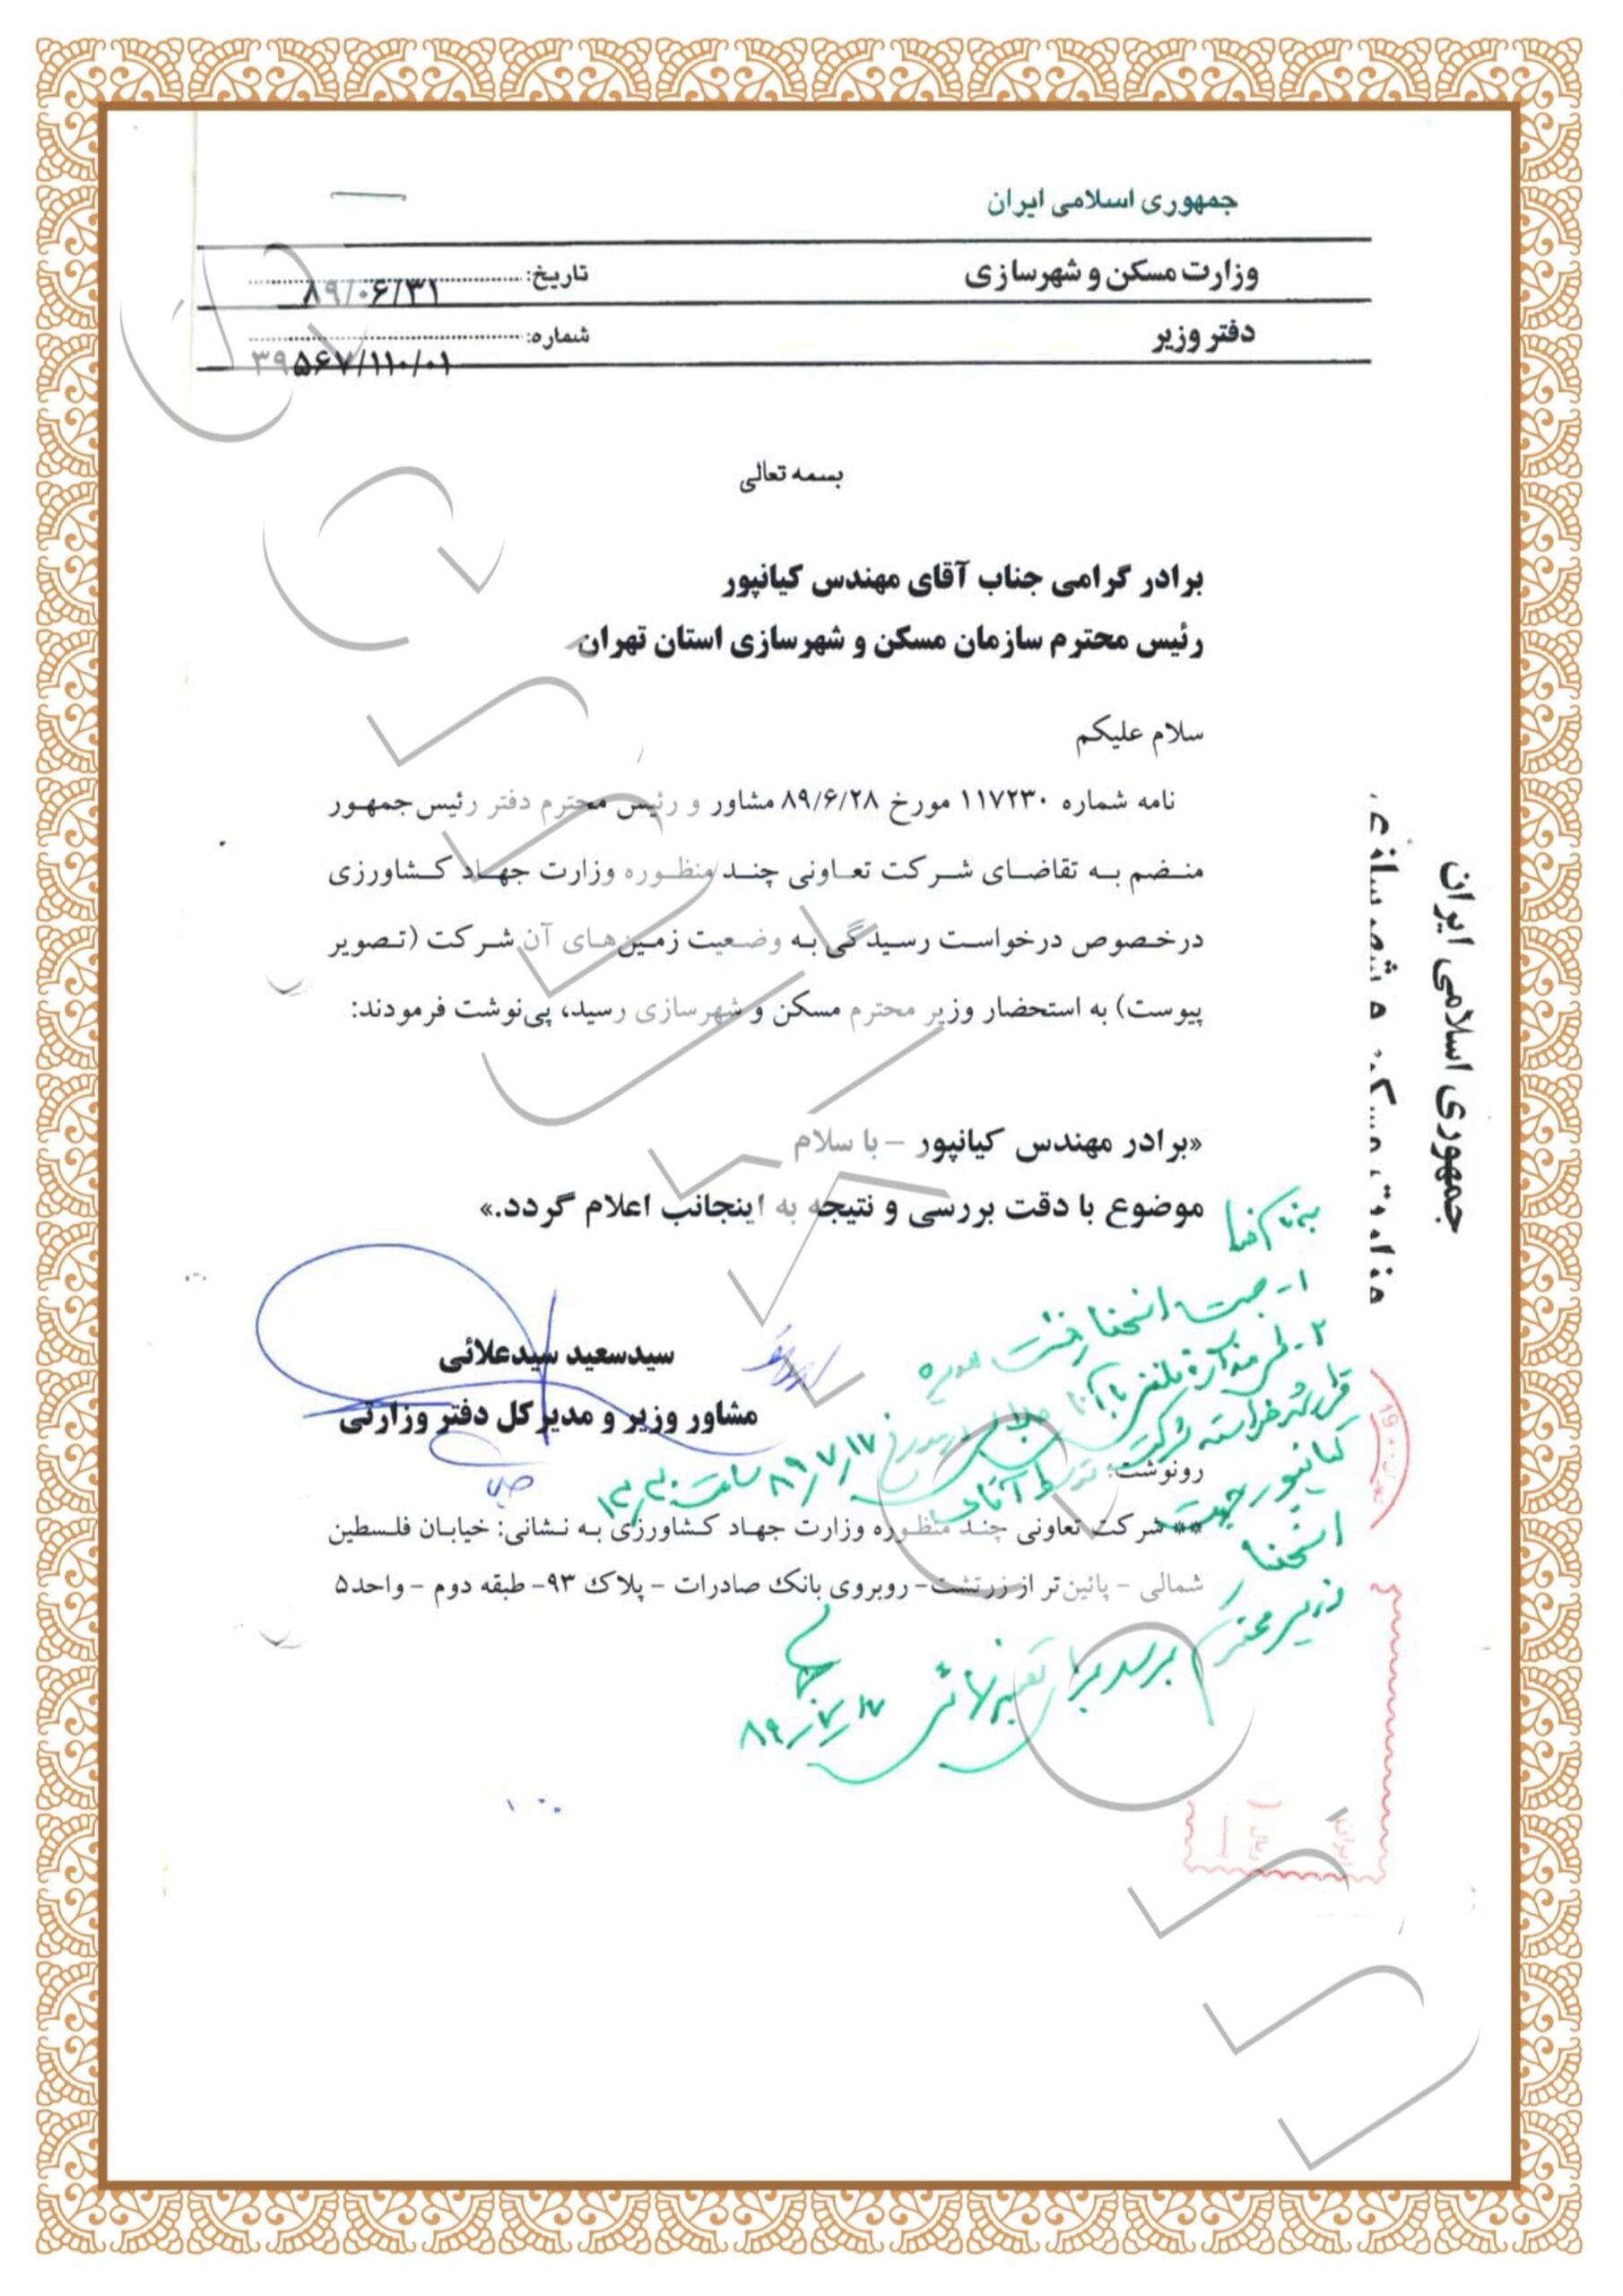 جمهوری اسلامی ایران
وزارت مسکن و شهرسازی
تاریخ: ۸۹/۰۶/۳۱
دفتر وزیر
شماره: ۳۹۵۶۷/۱۱۰/۰۱
بسمه تعالی
برادر گرامی جناب آقای مهندس کیانپور
رئیس محترم سازمان مسکن و شهرسازی استان تهران
سلام علیکم
نامه شماره ۱۱۷۲۳۰ مورخ ۸۹/۶/۲۸ مشاور و رئیس محترم دفتر رئیس جمهور
منضم به تقاضای شرکت تعاونی چند منظوره وزارت جهاد کشاورزی
درخصوص درخواست رسیدگی به وضعیت زمین‌های آن شرکت (تصویر
پیوست) به استحضار وزیر محترم مسکن و شهرسازی رسید، پی‌نوشت فرمودند:
«برادر مهندس کیانپور – با سلام
موضوع با دقت بررسی و نتیجه به اینجانب اعلام گردد.»
سیدسعید سیدعلائی
مشاور وزیر و مدیر کل دفتر وزارتی
رونوشت:
** شرکت تعاونی چند منظوره وزارت جهاد کشاورزی به نشانی: خیابان فلسطین
شمالی - پائین‌تر از زرتشت- روبروی بانک صادرات - پلاک ۹۳- طبقه دوم - واحد۵
کیانپور جهت
استحضار
وزیر محترم برسد
۸۹/۷/۱۷
جمهوری اسلامی ایران